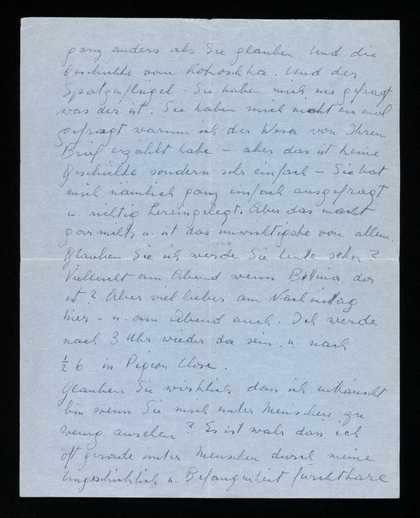 ganz anders als Sie glauben. Und die
Geschichte vom Kokoschka. Und der
Spatzenflügel - Sie haben mich nie gefragt
was der ist. Sie haben mich nicht einmal
gefragt warum ich der Wera von Ihrem
Brief erzählt habe - aber das ist keine
Geschichte sondern sehr einfach - Sie hat
mich nämlich ganz einfach ausgefragt
u. richtig hereingelegt. Aber das macht
gar nichts u. ist das unwichtigste von allem.
Glauben Sie ich werde Sie heute sehn?
Vielleicht am Abend wenn Bettina dor
ist? Aber viel lieber am Nachmittag
hier - u. am Abend auch. Ich werde
nach 3 Uhr wieder da sein. u. nach
½ 6 in Pigeon Close.
Glauben Sie wirklich dass ich enttäuscht
bin wenn Sie mich unter Menschen zu
wenig ansehen? Es ist wahr dass ich
oft gerade unter Menschen durch meine
Ungeschicklich u. Befangenheit furchtbare